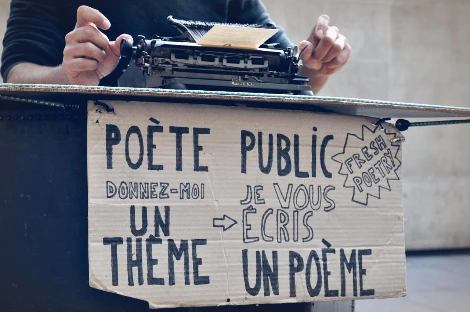 POÈTE PUBLIC
FRESH
POETRY
DONNEZ-MOI JE VOUS
UN → ÉCRIS
THÈME UN POÈME